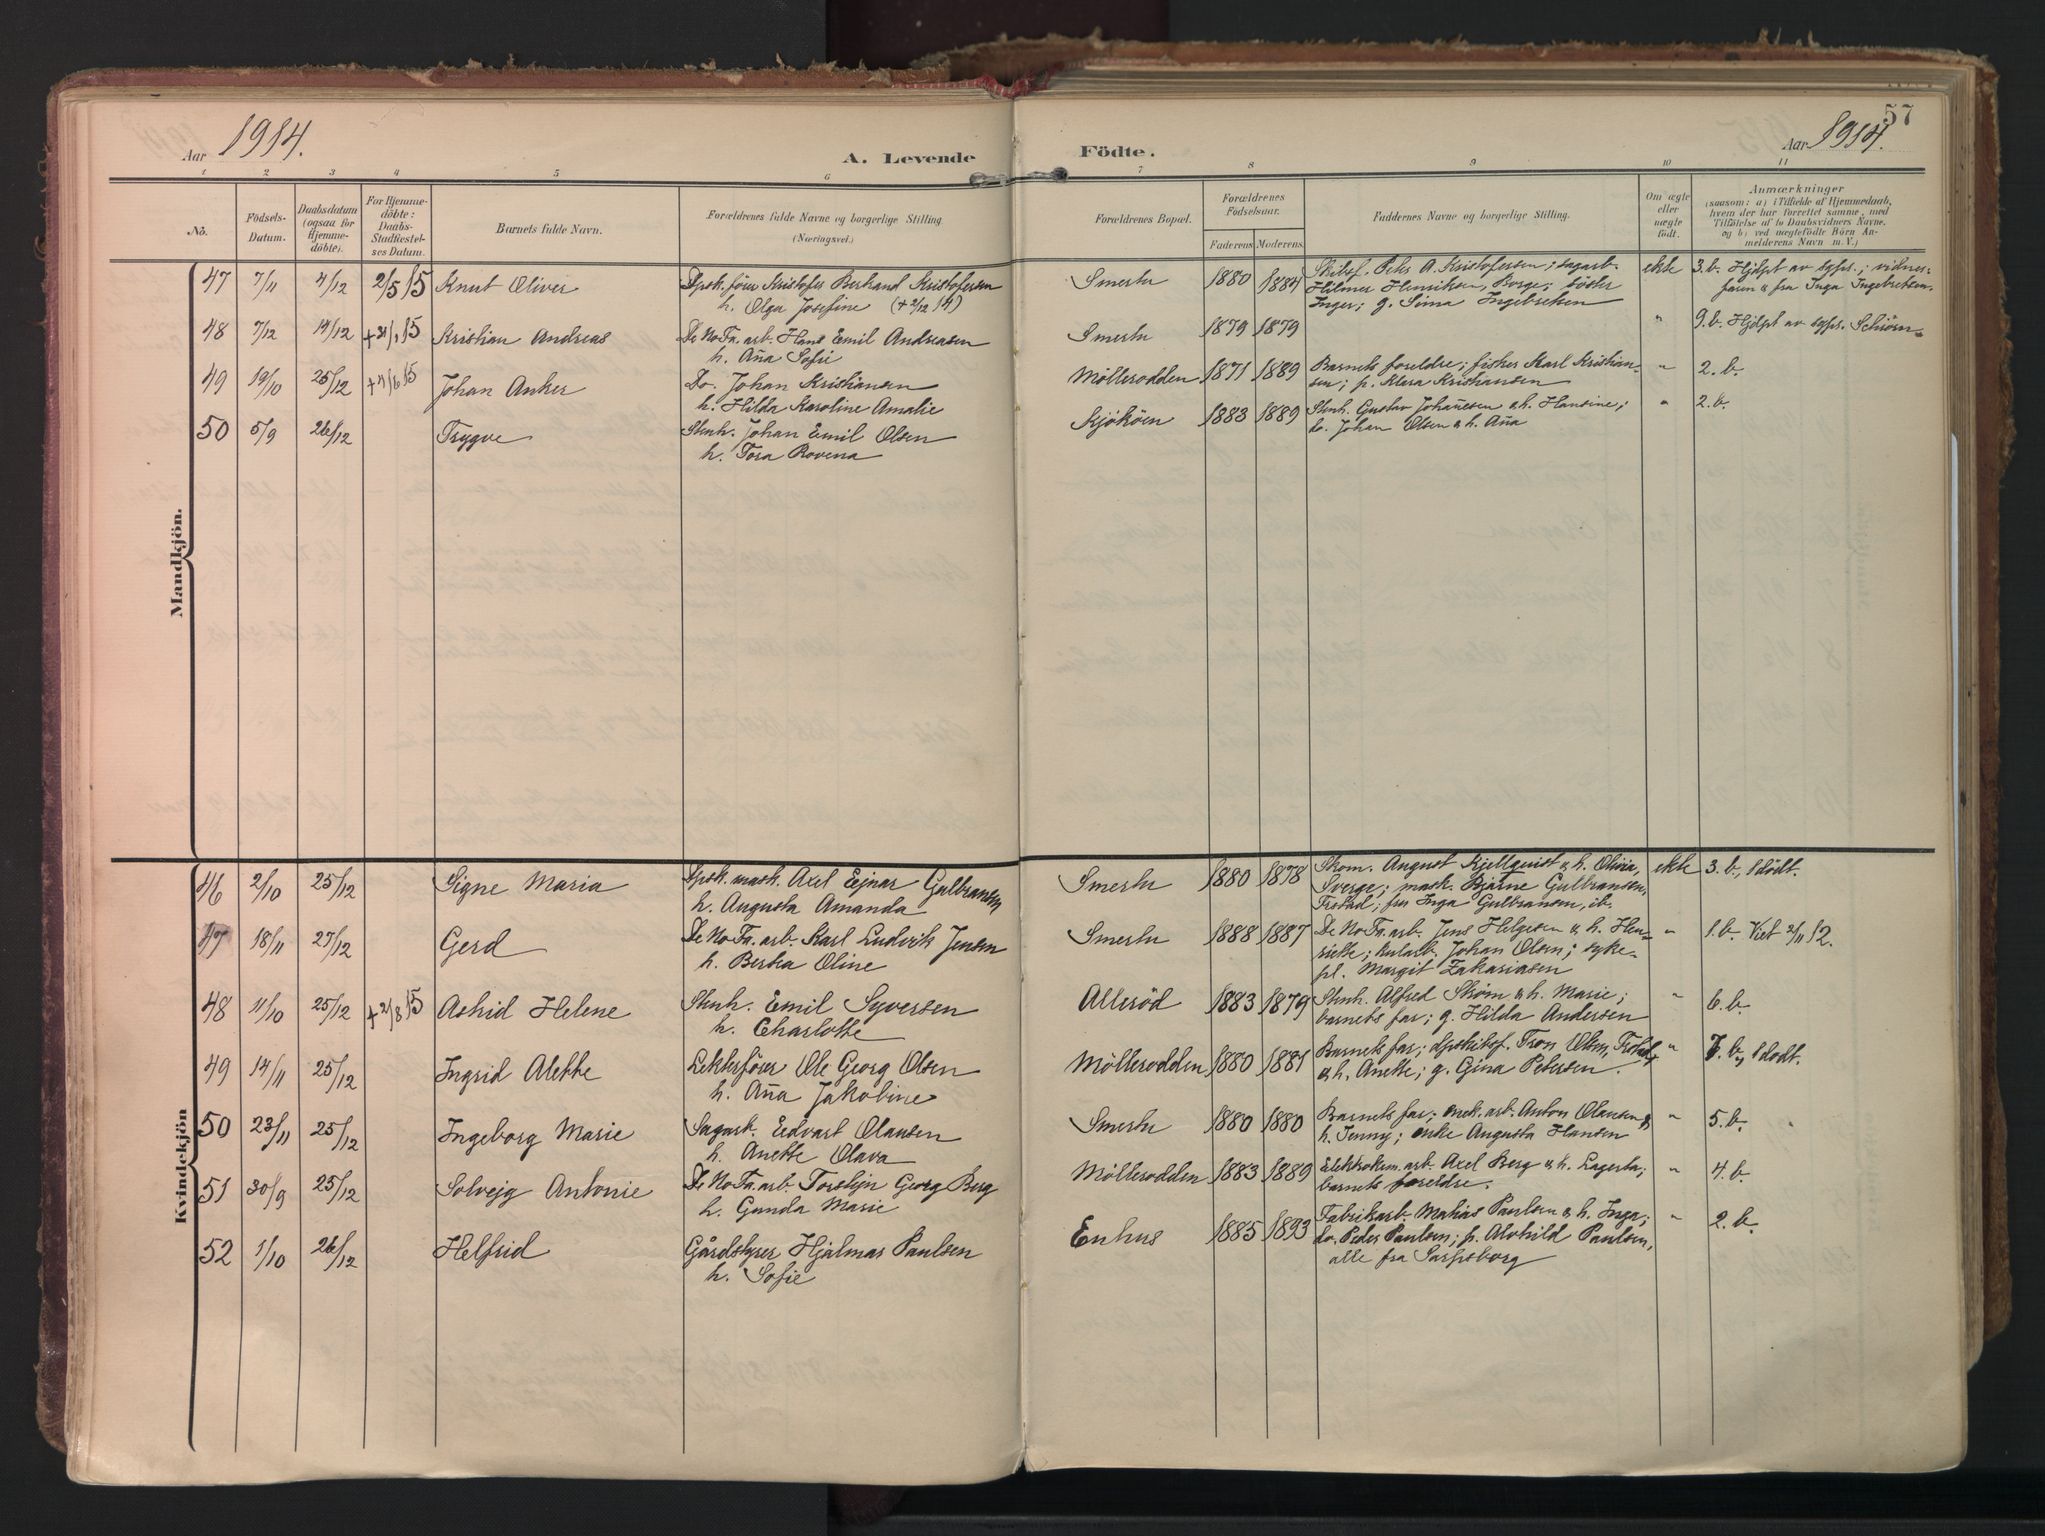 57
Aar 1914.
A. Levende Födte.
Aar 1914.
1 2 3 4 5 6 7 8 9 10 11
No.
Födsels-
Datum.
Daabsdatum
(ogsaa for
Hjemme-
döbte).
For Hjemme-
döbte:
Daabs-
Stadfæstel-
ses Datum.
Barnets fulde Navn.
Forældrenes fulde Navne og borgerlige Stilling.
(Næringsvei.)
Forældrenes Bopæl.
Forældrenes
Födselsaar.
Faderens. Moderens.
Faddernes Navne og borgerlige Stilling.
Om ægte
eller
uægte
födt.
Anmærkninger
(saasom: a) i Tilfælde af Hjemmedaab,
hvem der har forrettet samme, med
Tilföielse af to Daabsvidners Navne.
og b) ved uægtefödte Börn An-
melderens Navn m. V.)
Mandkjön.
47 7/11 4/12 2/5 15 Knut Oliver
Dpsk.förer Kristofer Bertrand Kristofersen
h. Olga Josefine (+ 2/12 14)
Smertu 1880 1884
Skibsf. Peter A. Kristofersen; sagarb.
Hilmer Henriksen, Borge; söster
Inger; g. Sima Ingebretsen
ekte
3. b. Hjdpt av sgpr.; vidner
faren & fra Inga Ingebretsen.
48 7/12 14/12 + 21/1 15 Kristian Andreas
De No Fa. arb. Hans Emil Andreasen
h. Aña Sofie
Smertu 1879 1879
" 9. b. Hjdpt av sgpr. Schiörn
49 19/10 25/12 + 4/6 15 Johan Anker
Do. Johan Kristiansen
h. Hilda Karoline Amalie
Möllerodden 1871 1889
Barnets foreldre; fisker Karl Kristian-
sen; p. Klara Kristiansen
" 2. b.
50 5/9 26/12 Trygve
Stenh. Johan Emil Olsen
h. Tora Rovena
Kjököen 1883 1889
Stenh. Gustav Johañesen & h. Hansine;
do. Johan Olsen & h. Aña
" 2. b.
Kvindekjön
46 2/10 25/12 Signe Maria
Dpsk. mask. Axel Ejnar Gulbransen
h. Augusta Amanda
Smertu 1880 1878
Skom. August Kjellquist & h. Olivia,
Sverge; mask. Bjarne Gulbransen,
Frstad; fru Inga Gulbransen, ib.
ekte 3. b., 1 dödt.
47 18/11 27/12 Gerd
De No Fa. arb. Karl Ludvik Jensen
h. Berta Oline
Smertu 1888 1887
De No Fa. arb. Jens Helgesen & h. Hen-
riette; kularb. Johan Olsen; syke-
pl. Margit Zakariasen
" 1. b. Viet 2/11 12.
48 11/10 25/12 + 21/8 15 Astrid Helene
Stenh. Emil Syversen
h. Charlotte
Alleröd 1883 1879
Stenh. Alfred Ström & h. Marie;
barnets far; g. Hilda Andersen
" 6. b.
49 14/11 25/12 Ingrid Alette
Lekterförer Ole Georg Olsen
h. Aña Jakobine
Möllerodden 1880 1881
Barnets far; dpskibsf. Tron Olsen,
& h. Anette; g. Gina Petersen.
" 7. b., 1 dödt.
50 23/11 25/12 Ingeborg Marie
Sagarb. Edvart Olausen
h. Anette Olava
Smertu 1880 1880
Barnets far; mek. arb. Anton Olausen &
h. Jenny; enke Augusta Hansen
" 5. b.
51 30/9 25/12 Solvejg Antonie
De No Fa. arb. Torstejn Georg Berg
h. Gunda Marie
Möllerodden 1883 1889
Elektrokem. arb. Axel Berg & h. Lagerta;
barnets foreldre.
" 4. b.
52 1/10 26/12 Helfrid
Gårdstyrer Hjalmar Paulsen
h. Sofie
Enhus 1885 1893
Fabrikarb. Matias Paulsen & h. Inga;
do. Peder Paulsen; p. Alvhild Paulsen,
alle fra Sarpsborg
" 2. b.